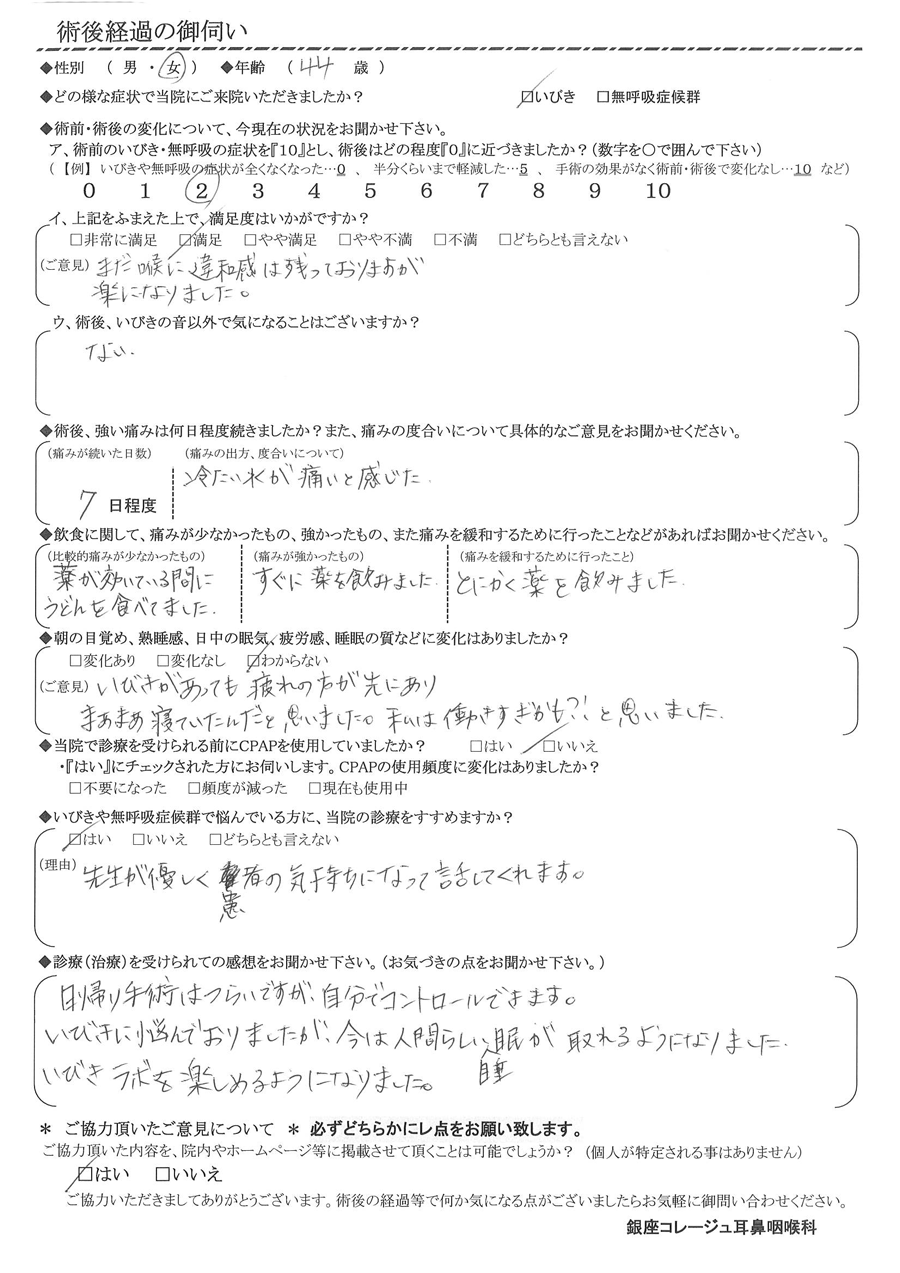 術後経過の御伺い
◆性別 （ 男 ・ 女 ） ◆年齢 （ 44 歳 ）
◆どの様な症状で当院にご来院いただきましたか？ □いびき □無呼吸症候群
◆術前・術後の変化について、今現在の状況をお聞かせ下さい。
ア、術前のいびき・無呼吸の症状を『10』とし、術後はどの程度『0』に近づきましたか？（数字を〇で囲んで下さい）
（【例】 いびきや無呼吸の症状が全くなくなった…0 、 半分くらいまで軽減した…5 、 手術の効果がなく術前・術後で変化なし…10 など）
0 1 2 3 4 5 6 7 8 9 10
イ、上記をふまえた上で、満足度はいかがですか？
□非常に満足 □満足 □やや満足 □やや不満 □不満 □どちらとも言えない
（ご意見） まだ喉に違和感は残っておりますが
楽になりました。
ウ、術後、いびきの音以外で気になることはございますか？
ない.
◆術後、強い痛みは何日程度続きましたか？また、痛みの度合いについて具体的なご意見をお聞かせください。
（痛みが続いた日数） （痛みの出方、度合いについて）
冷たい水が痛いと感じた.
7 日程度
◆飲食に関して、痛みが少なかったもの、強かったもの、また痛みを緩和するために行ったことなどがあればお聞かせください。
（比較的痛みが少なかったもの） （痛みが強かったもの） （痛みを緩和するために行ったこと）
薬が効いている間に すぐに薬を飲みました. とにかく薬を飲みました.
うどんを食べてました.
◆朝の目覚め、熟睡感、日中の眠気、疲労感、睡眠の質などに変化はありましたか？
□変化あり □変化なし □わからない
（ご意見） いびきがあっても疲れの方が先にあり
まぁまぁ寝ていたんだと思いました。私は働きすぎかも?!と思いました.
◆当院で診療を受けられる前にCPAPを使用していましたか？ □はい □いいえ
・『はい』にチェックされた方にお伺いします。CPAPの使用頻度に変化はありましたか？
□不要になった □頻度が減った □現在も使用中
◆いびきや無呼吸症候群で悩んでいる方に、当院の診療をすすめますか？
□はい □いいえ □どちらとも言えない
（理由） 先生が優しく患者の気持ちになって話してくれます。
◆診療（治療）を受けられての感想をお聞かせ下さい。（お気づきの点をお聞かせ下さい。）
日帰り手術はつらいですが、自分でコントロールできます。
いびきに悩んでおりましたが、今は人間らしい睡眠が取れるようになりました.
いびきラボを楽しめるようになりました。
＊ ご協力頂いたご意見について ＊ 必ずどちらかにレ点をお願い致します。
ご協力頂いた内容を、院内やホームページ等に掲載させて頂くことは可能でしょうか？ （個人が特定される事はありません）
□はい □いいえ
ご協力いただきましてありがとうございます。術後の経過等で何か気になる点がございましたらお気軽に御問い合わせください。
銀座コレージュ耳鼻咽喉科